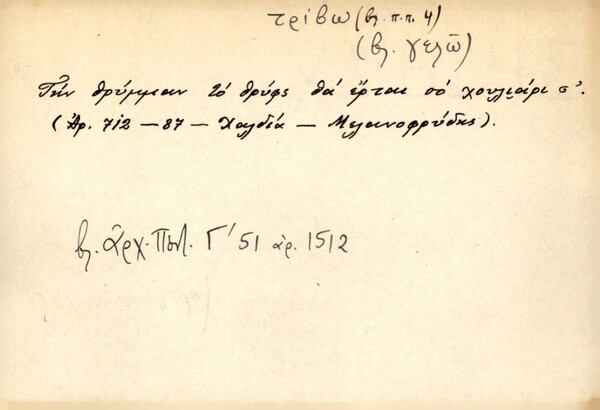 τρίβω (βλ. π.π. 4)
(βλ. γελῶ)
Τὴν θρύμμαν τὸ θρύφς θὰ ἔρται σὸ χουλιάρι σ'.
(Ἀρ. 712 – 87 – Χαλδία – Μελανοφρύδης).
βλ. ἀρχ. Ποντ. Γ' 51 ἀρ. 1512